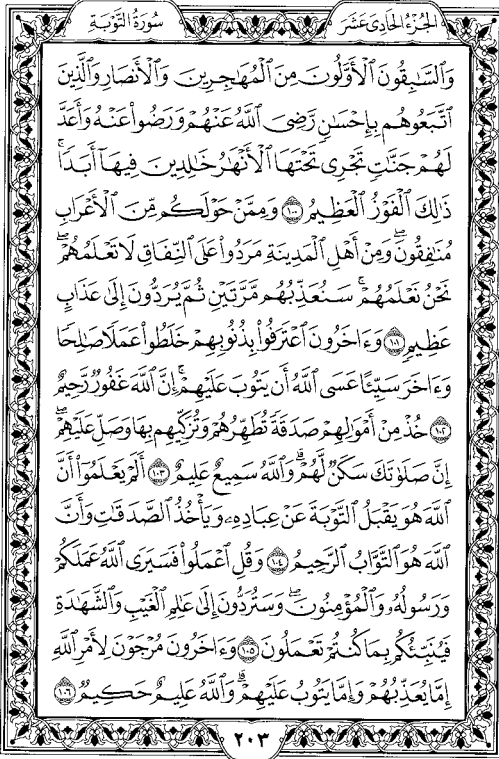 الجُزْءُ الحَادِي عَشَرَ
سُورَةُ التَّوْبَةِ
وَالسَّٰبِقُونَ الْأَوَّلُونَ مِنَ الْمُهَٰجِرِينَ وَالْأَنصَارِ وَالَّذِينَ
اتَّبَعُوهُم بِإِحْسَٰنٍ رَّضِىَ اللَّهُ عَنْهُمْ وَرَضُوا۟ عَنْهُ وَأَعَدَّ
لَهُمْ جَنَّٰتٍ تَجْرِى تَحْتَهَا الْأَنْهَٰرُ خَٰلِدِينَ فِيهَآ أَبَدًا ۚ
ذَٰلِكَ الْفَوْزُ الْعَظِيمُ ١٠٠ وَمِمَّنْ حَوْلَكُم مِّنَ الْأَعْرَابِ
مُنَٰفِقُونَ ۖ وَمِنْ أَهْلِ الْمَدِينَةِ مَرَدُوا۟ عَلَى النِّفَاقِ لَا تَعْلَمُهُمْ ۖ
نَحْنُ نَعْلَمُهُمْ ۚ سَنُعَذِّبُهُم مَّرَّتَيْنِ ثُمَّ يُرَدُّونَ إِلَىٰ عَذَابٍ
عَظِيمٍ ١٠١ وَءَاخَرُونَ اعْتَرَفُوا۟ بِذُنُوبِهِمْ خَلَطُوا۟ عَمَلًا صَٰلِحًا
وَءَاخَرَ سَيِّئًا عَسَى اللَّهُ أَن يَتُوبَ عَلَيْهِمْ ۚ إِنَّ اللَّهَ غَفُورٌ رَّحِيمٌ
١٠٢ خُذْ مِنْ أَمْوَٰلِهِمْ صَدَقَةً تُطَهِّرُهُمْ وَتُزَكِّيهِم بِهَا وَصَلِّ عَلَيْهِمْ ۖ
إِنَّ صَلَوٰتَكَ سَكَنٌ لَّهُمْ ۗ وَاللَّهُ سَمِيعٌ عَلِيمٌ ١٠٣ أَلَمْ يَعْلَمُوٓا۟ أَنَّ
اللَّهَ هُوَ يَقْبَلُ التَّوْبَةَ عَنْ عِبَادِهِۦ وَيَأْخُذُ الصَّدَقَٰتِ وَأَنَّ
اللَّهَ هُوَ التَّوَّابُ الرَّحِيمُ ١٠٤ وَقُلِ اعْمَلُوا۟ فَسَيَرَى اللَّهُ عَمَلَكُمْ
وَرَسُولُهُۥ وَالْمُؤْمِنُونَ ۖ وَسَتُرَدُّونَ إِلَىٰ عَٰلِمِ الْغَيْبِ وَالشَّهَٰدَةِ
فَيُنَبِّئُكُم بِمَا كُنتُمْ تَعْمَلُونَ ١٠٥ وَءَاخَرُونَ مُرْجَوْنَ لِأَمْرِ اللَّهِ
إِمَّا يُعَذِّبُهُمْ وَإِمَّا يَتُوبُ عَلَيْهِمْ ۗ وَاللَّهُ عَلِيمٌ حَكِيمٌ ١٠٦
٢٠٣